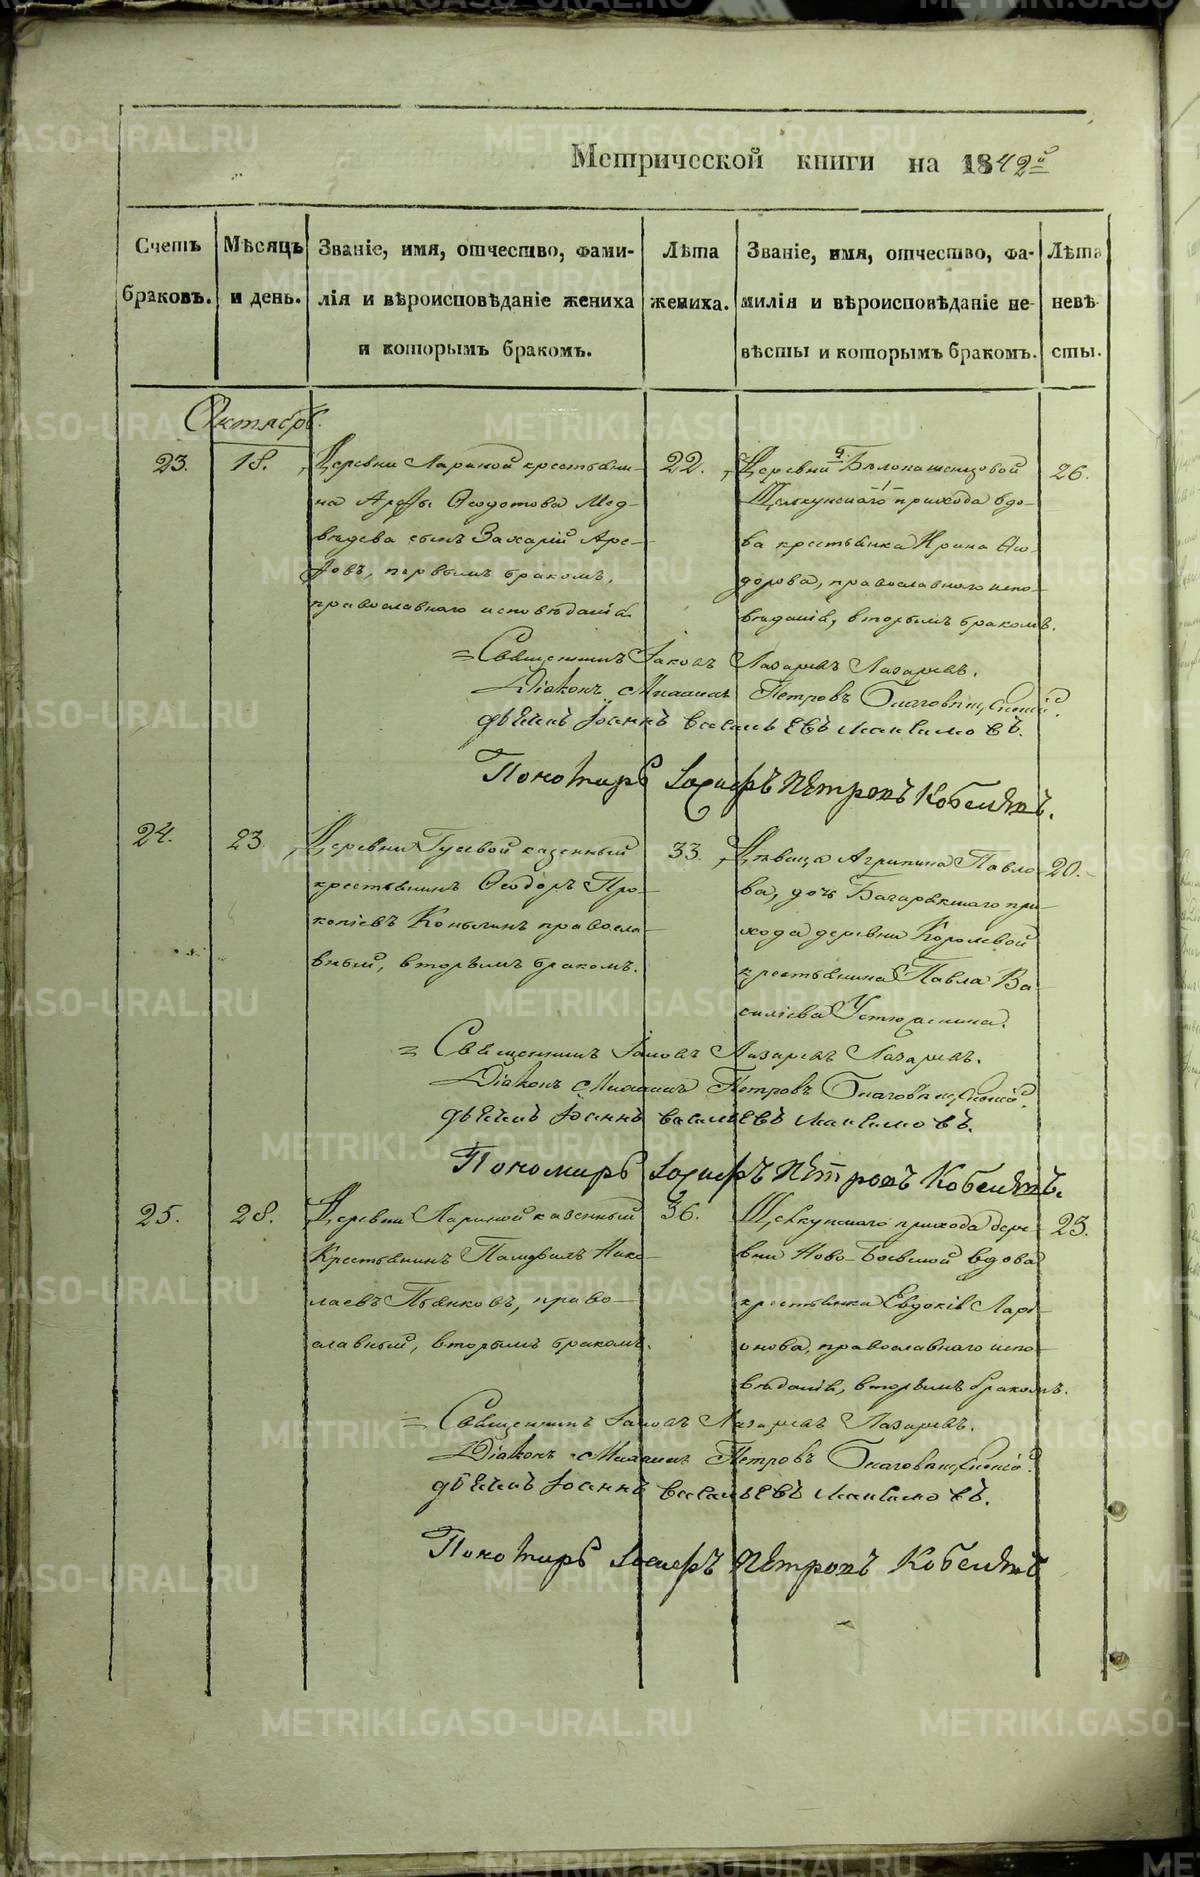 Метрической книги на 1842й
Счетъ браковъ.
Мѣсяцъ и день.
Званіе, имя, отчество, фами-
лія и вѣроисповѣданіе жениха
и которымъ бракомъ.
Лѣта жениха.
Званіе, имя, отчество, фа-
милія и вѣроисповѣданіе не-
вѣсты и которымъ бракомъ.
Лѣта невѣ-
сты.
Октябрь.
23.
18.
Деревни Лариной крестьяни-
на Арефы Ѳеодотова Мед-
вѣдева сынъ Захарій Аре-
фовъ, первымъ бракомъ,
православнаго исповѣданія.
22.
Деревни
Щелкунскаго прихода вдо-
ва крестьянка Ирина Ѳео-
дорова, православнаго испо-
вѣданія, вторымъ бракомъ.
26.
Священникъ Іаковъ Лазаревъ Лазаревъ.
Діаконъ Михаилъ Петровъ Благовѣщенскій.
дьячекъ Іоаннъ Васильевъ Максимовъ.
Пономарь Іосифъ Петровъ
24.
23.
Деревни Гусевой казенный
крестьянинъ Ѳеодоръ Про-
копіевъ Копыловъ правосла-
вный, вторымъ бракомъ.
33.
Дѣвица Агрипина Павло-
ва, дочь Багарякскаго при-
хода деревни Королевой
крестьянина Павла Ва-
силіева
20.
Священникъ Іаковъ Лазаревъ Лазаревъ.
Діаконъ Михаилъ Петровъ Благовѣщенскій.
дьячекъ Іоаннъ Васильевъ Максимовъ.
Пономарь Іосифъ Петровъ
25.
28.
Деревни Лариной казенный
Крестьянинъ Памфилъ Нико-
лаевъ Пьянковъ, право-
славный, вторымъ бракомъ.
36.
Щелкунскаго прихода дере-
вни Ново-Боевской вдова
крестьянка Евдокія Лари-
онова, православнаго испо-
вѣданія, вторымъ бракомъ.
23.
Священникъ Іаковъ Лазаревъ Лазаревъ.
Діаконъ Михаилъ Петровъ Благовѣщенскій.
дьячекъ Іоаннъ Васильевъ Максимовъ.
Пономарь Іосифъ Петровъ
METRIKI.GASO-URAL.RU